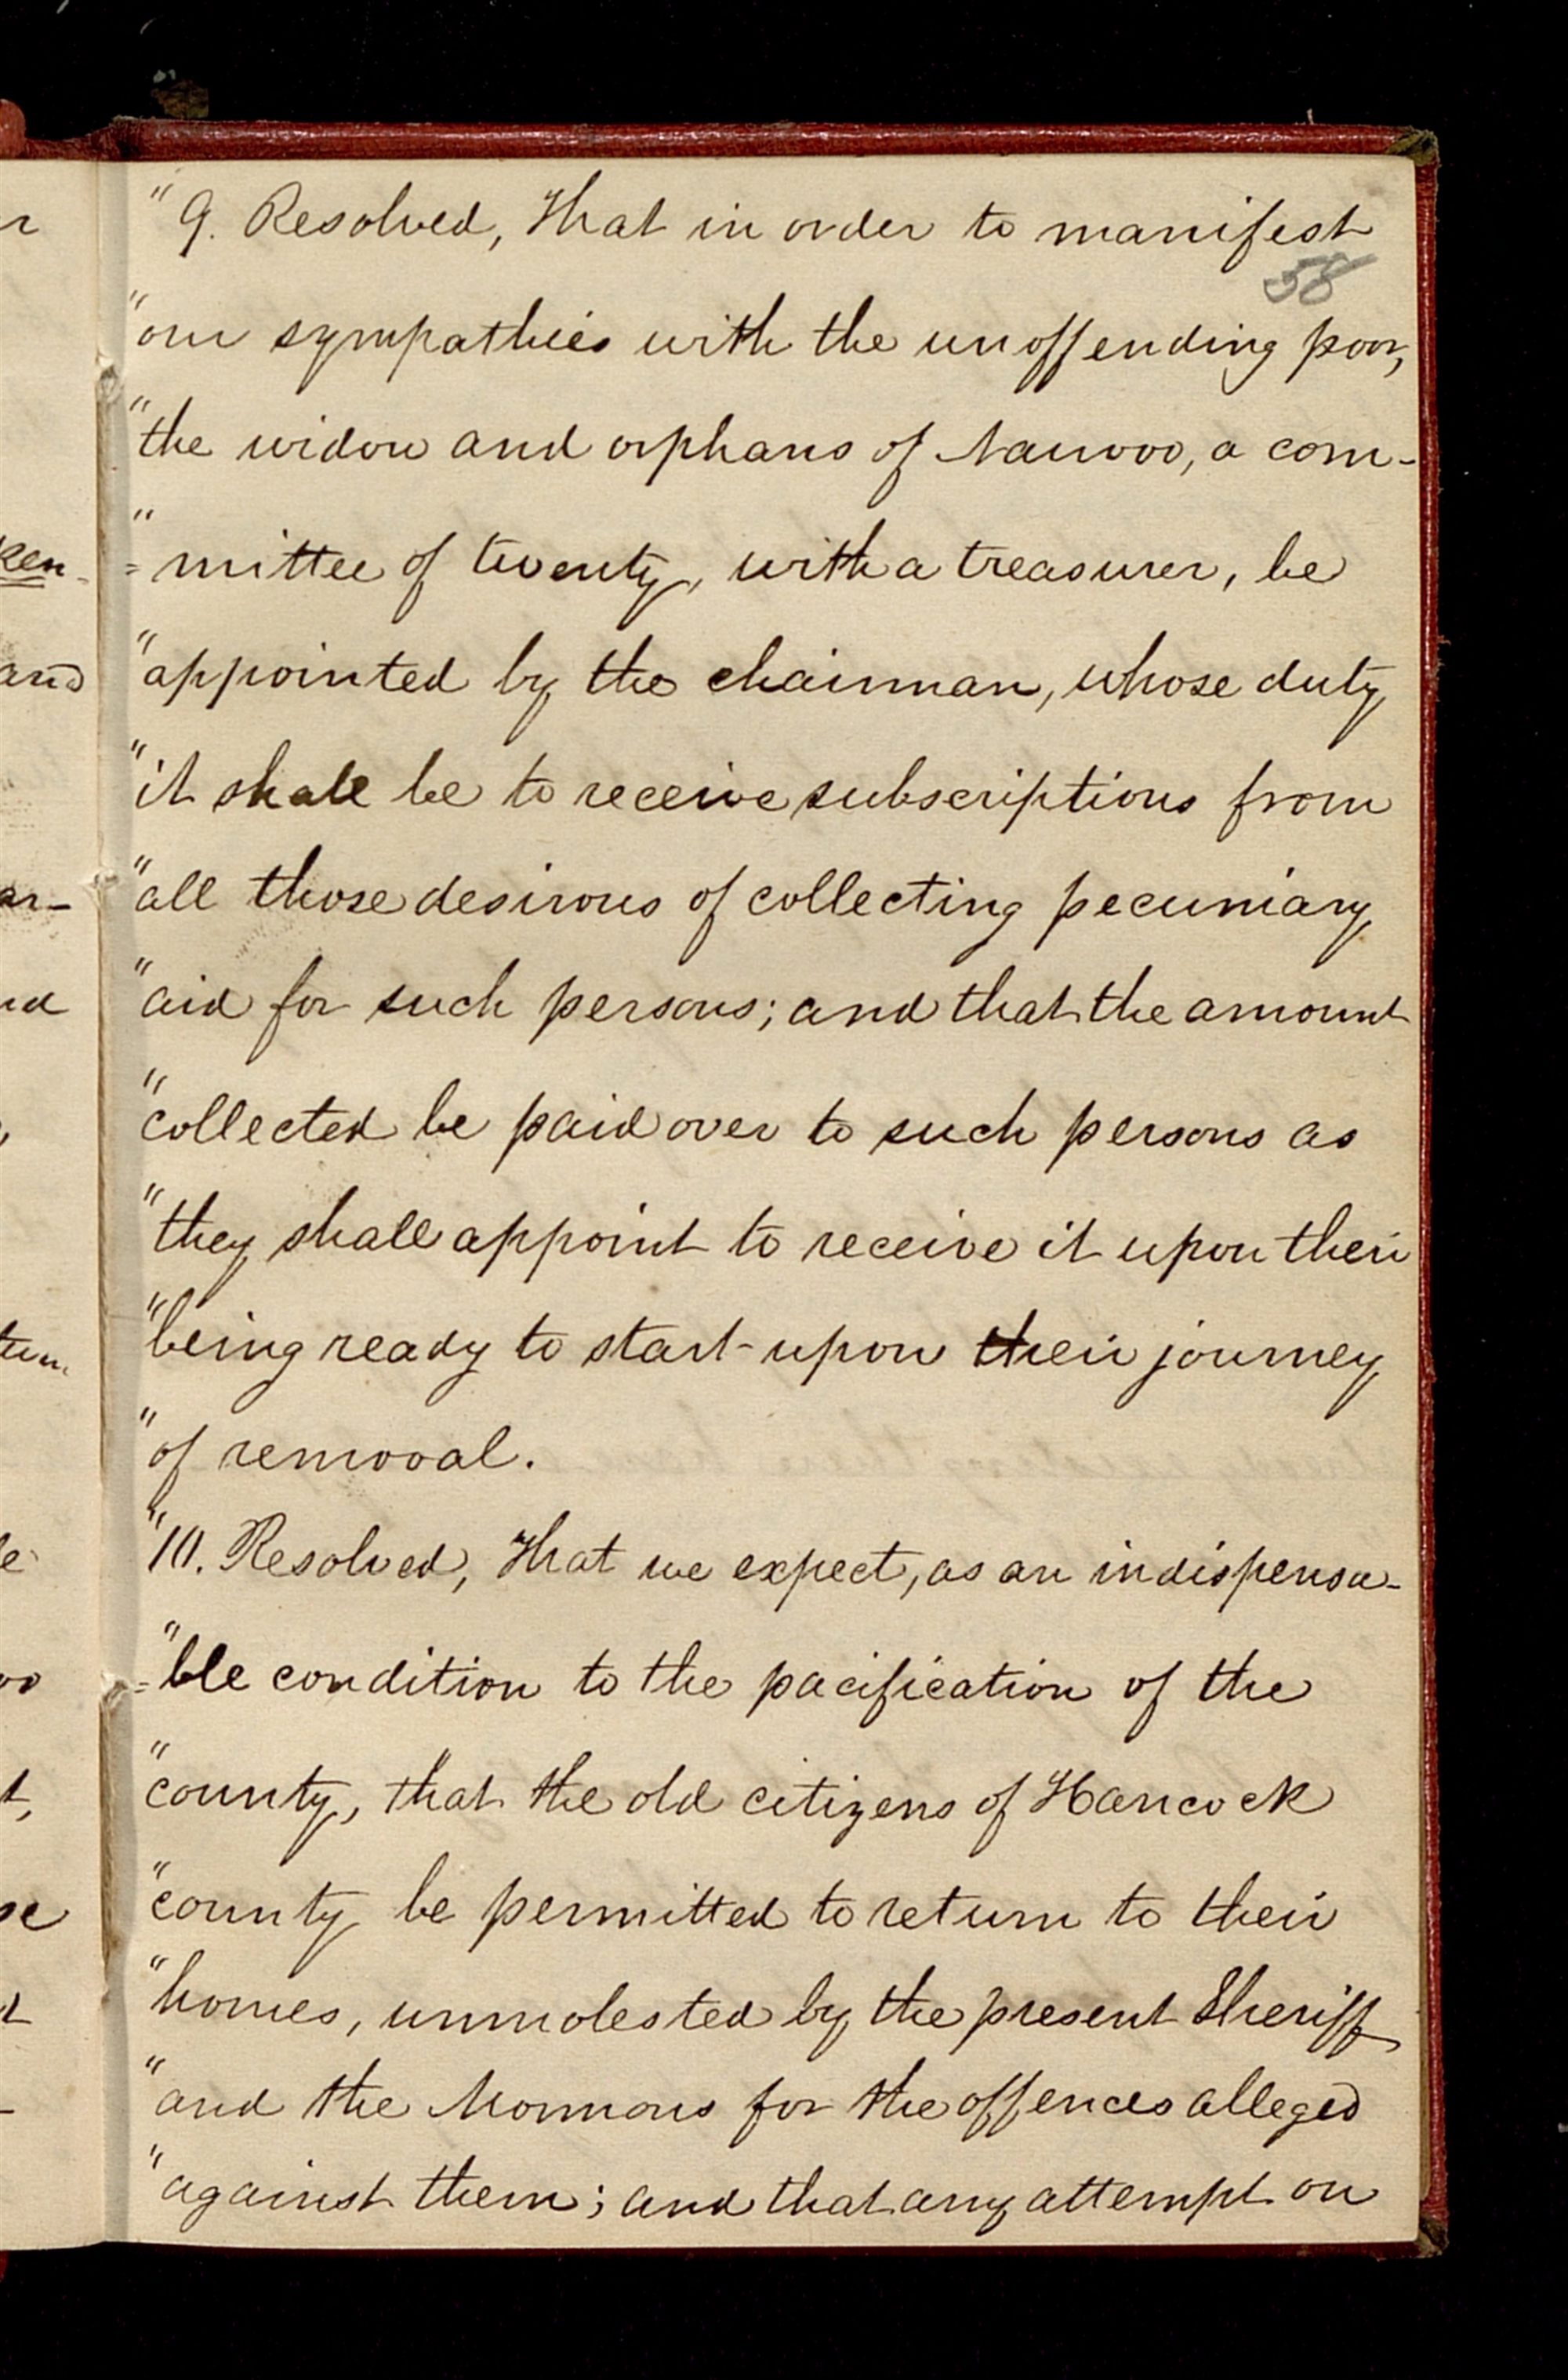 " 9. Resolved, That in order to manifest
58
" our sympathies with the unoffending poor,
" the widow and orphans of Nauvoo, a com-
" = mittee of twenty, with a treasurer, be
" appointed by the chairman, whose duty
" it shall be to receive subscriptions from
" all those desirous of collecting pecuniary
" aid for such persons; and that the amount
" collected be paid over to such persons as
" they shall appoint to receive it upon their
" being ready to start upon their journey
" of removal.
" 10. Resolved, That we expect, as an indispensa-
" = ble condition to the pacification of the
" county, that the old citizens of Hancock
" county be permitted to return to their
" homes, unmolested by the present Sheriff
" and the Mormons for the offences alleged
" against them; and that any attempt on